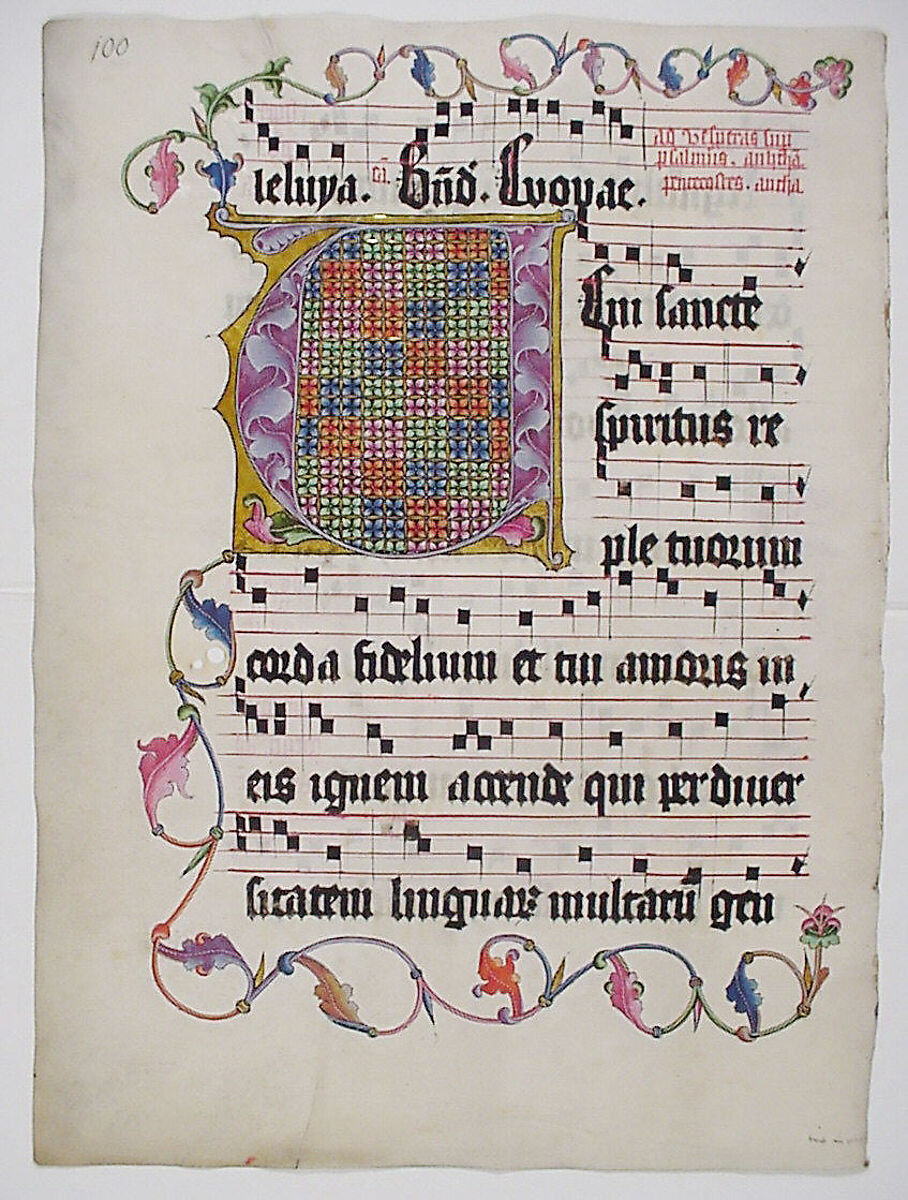 100
leluya. cā. Bñd. Euouae.
ad vesperas sup
psalmus. antiphā
pentecostes. antha
Eni sancte
spiritus re
ple tuorum
corda fidelium et tui amoris in
eis ignem accende qui per diuer
sitatem linguaꝝ multarū gen